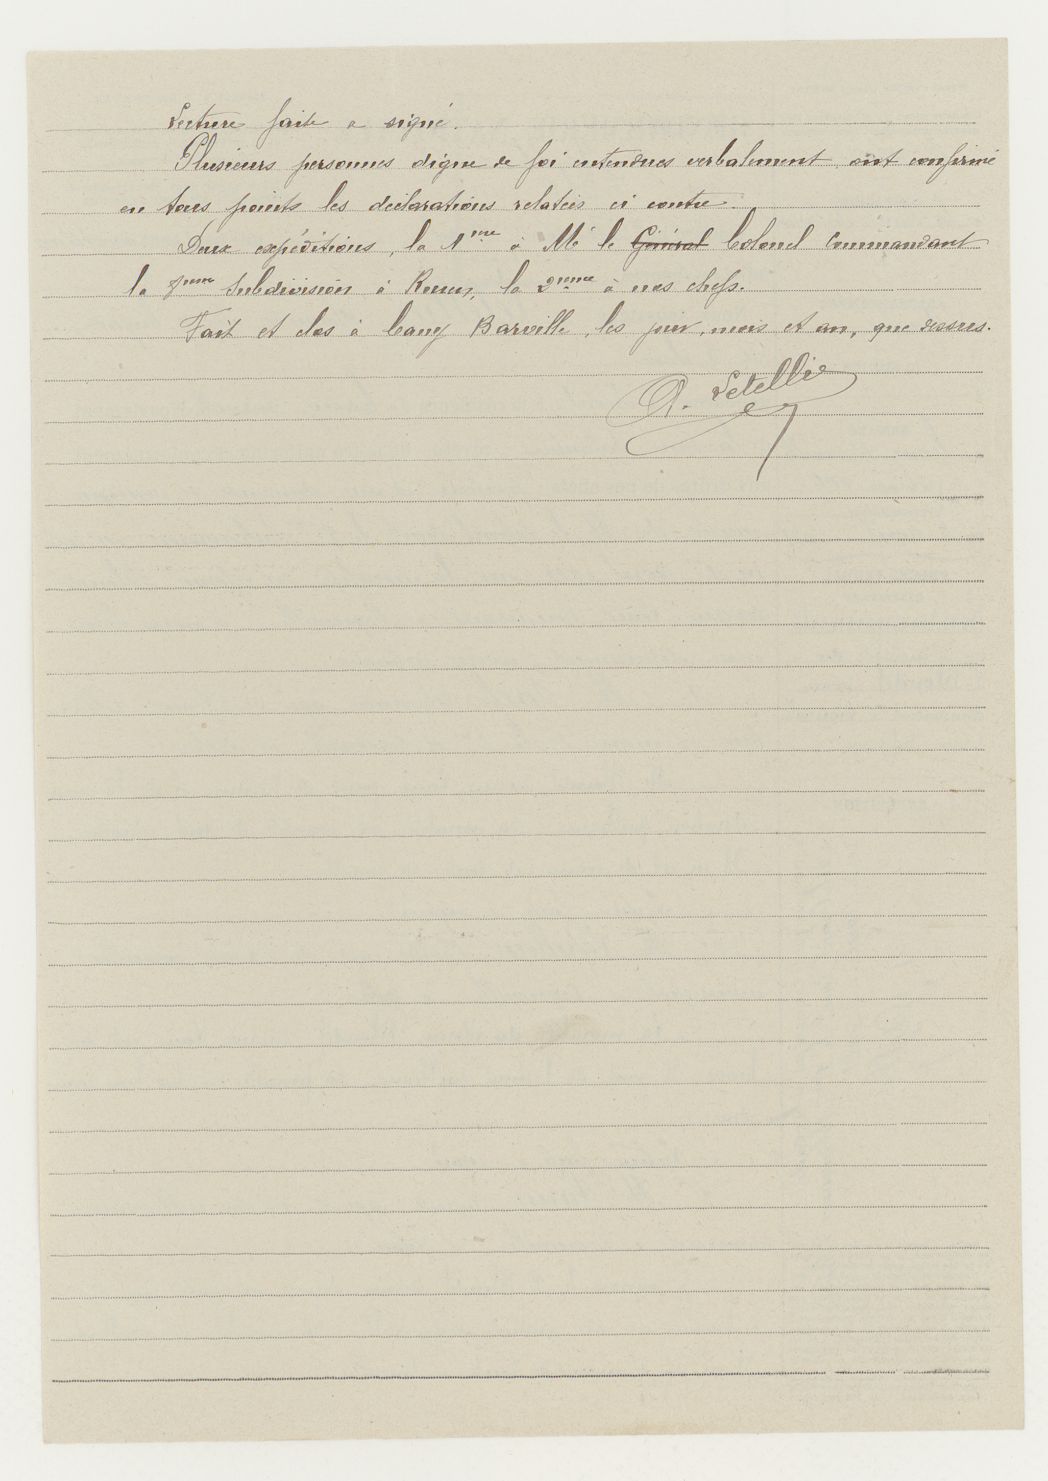 Lecture faite a signé.
Plusieurs personnes digne de foi entendues verbalement ont confirmé
en tous points les déclarations relatées ci contre.
Deux expéditions, la 1ère à Mr le Général Colonel Commandant
la subdivision à Rouen, la 2ème à nos chefs.
Fait et clos à Cany Barville, les jour, mois et an, que dessus.
A. Letellier